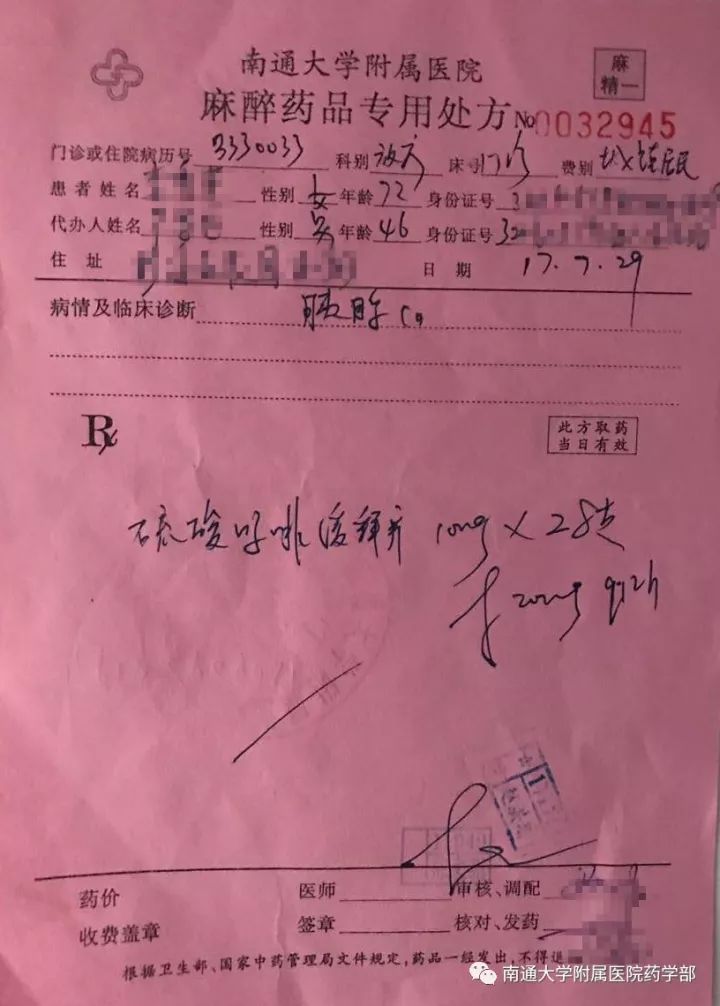 南通大学附属医院
麻精一
麻醉药品专用处方 No 0032945
门诊或住院病历号 3330033 科别 放疗 床号 门诊 费别 城镇居民
患者姓名 性别 女 年龄 72 身份证号 3
代办人姓名 性别 男 年龄 46 身份证号 32
住址 日期 17.7.29
病情及临床诊断 胰腺Ca
R
此方取药
当日有效
硫酸吗啡缓释片 10mg × 28片
20mg q12h
药价 医师 审核、调配
收费盖章 签章 核对、发药
根据卫生部、国家中药管理局文件规定，药品一经发出，不得退
南通大学附属医院药学部